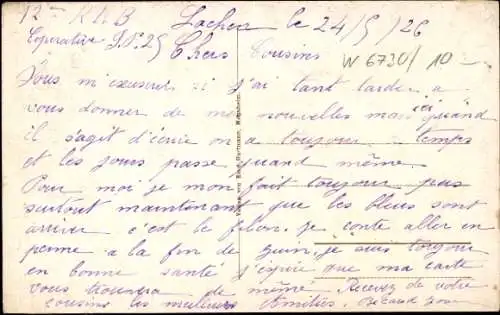 12me R A B Locher le 24/5/26
Coperative S.P. 25 Chers Cousins W 6730/10-
Vous m'excuserais si j'ai tant tarder a
vous donner de mes nouvelles mais ici quand
il s'agit d'écrire on a toujour temps
et les jours passe quand même
Pour moi je mon fait toujour pas
surtout maintenant que les bleus sont
arriver c'est le filon. je conte aller en
perme a la fin de Juin. je suis toujour
en bonne santé j'espère que ma carte
vous trouvera de même Recevez de votre
cousins les meilleurs Amitiés.